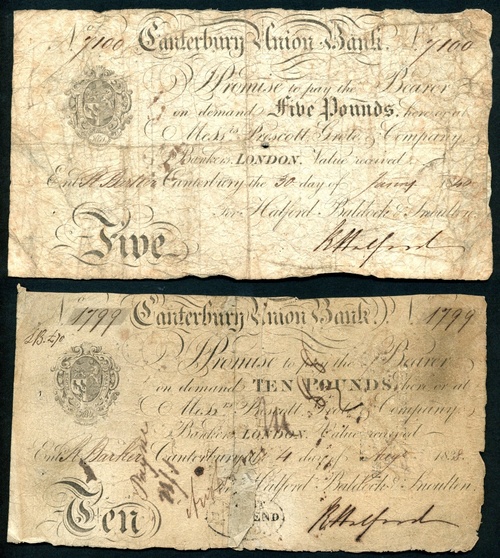 No 7100 Canterbury Union Bank. No 7100
I Promise to pay the Bearer
on demand Five Pounds, here or at
Messrs Prescott, Grote, & Company
Bankers, LONDON. Value received
Entd H Barker Canterbury the 30 day of Jany 1840
For Halford Baldock & Snoulten
Five
R Halford
No 1799 Canterbury Union Bank. No 1799
I Promise to pay the Bearer
on demand TEN POUNDS, here or at
Messrs Prescott, Grote, & Company
Bankers, LONDON. Value received
Entd H Barker Canterbury 4 day of Augt
For Halford Baldock & Snoulten
Ten
END
R Halford